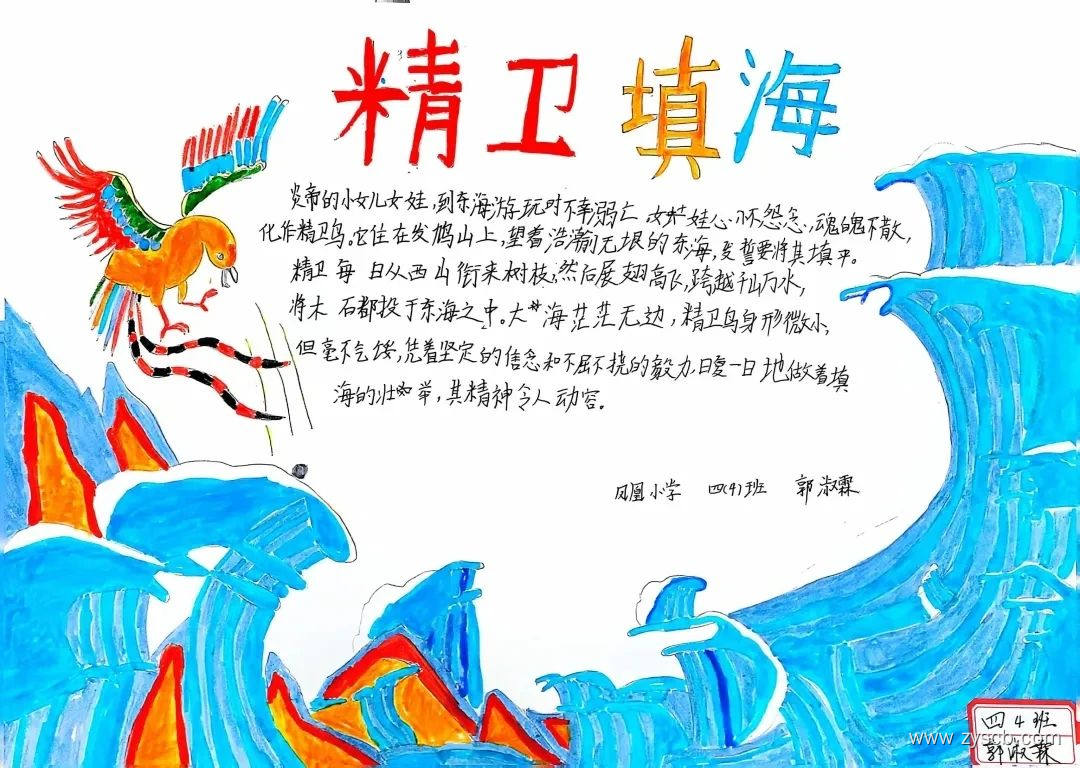 精卫填海
炎帝的小女儿女娃,到东海游玩时不幸溺亡 女娃心怀怨念,魂魄不散,
化作精卫鸟。它住在发鸠山上,望着浩瀚无垠的东海,发誓要将其填平。
精卫每日从西山衔来树枝,然后展翅高飞,跨越千山万水,
将木石都投于东海之中。大海茫茫无边,精卫鸟身形微小,
但毫不气馁,凭着坚定的信念和不屈不挠的毅力日复一日地做着填
海的壮举,其精神令人动容。
凤凰小学 四(4)班 郭淑霖
四4班
郭淑霖
www.zyscb.com